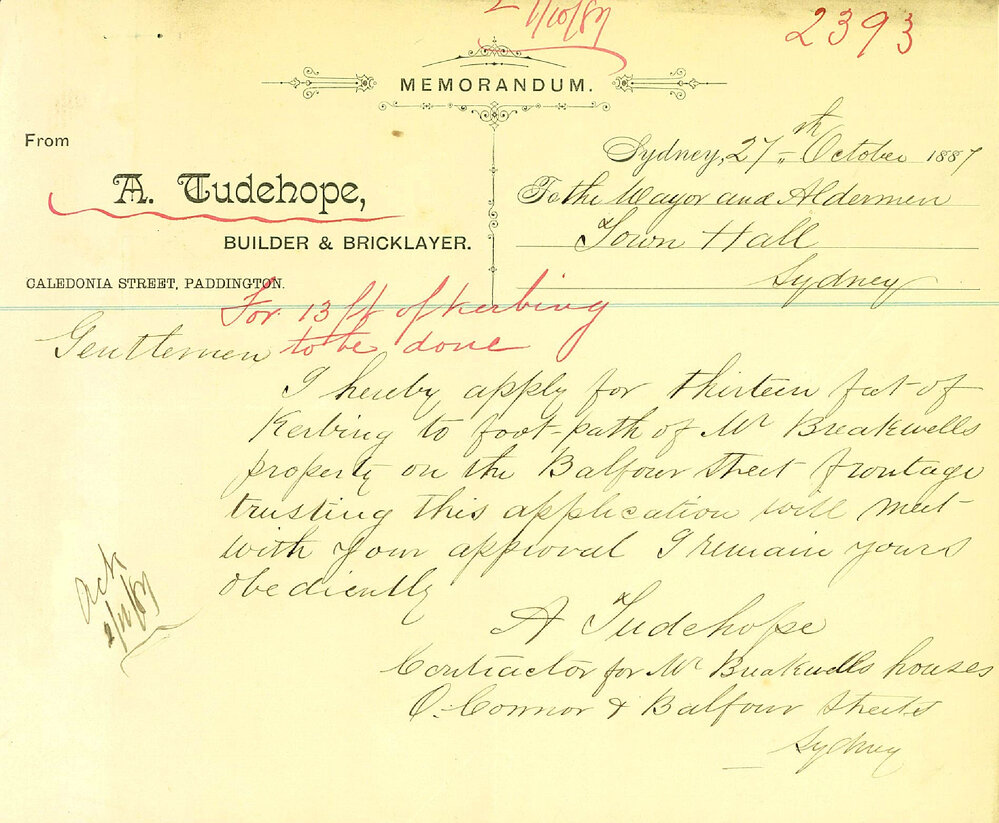 /10/87
2393
MEMORANDUM.
From
A. Tudehope,
BUILDER & BRICKLAYER.
CALEDONIA STREET, PADDINGTON.
Sydney, 27th October 1887
To the Mayor and Aldermen
Town Hall
Sydney
For 13 ft of kerbing
to be done
Gentlemen
I hereby apply for thirteen feet of
Kerbing to foot-path of Mr Breakwells
property on the Balfour Street frontage
trusting this application will meet
with your approval I remain yours
obediently
A Tudehope
Contractor for Mr Breakwells houses
O.Connor & Balfour Streets
Sydney
Ack
/87